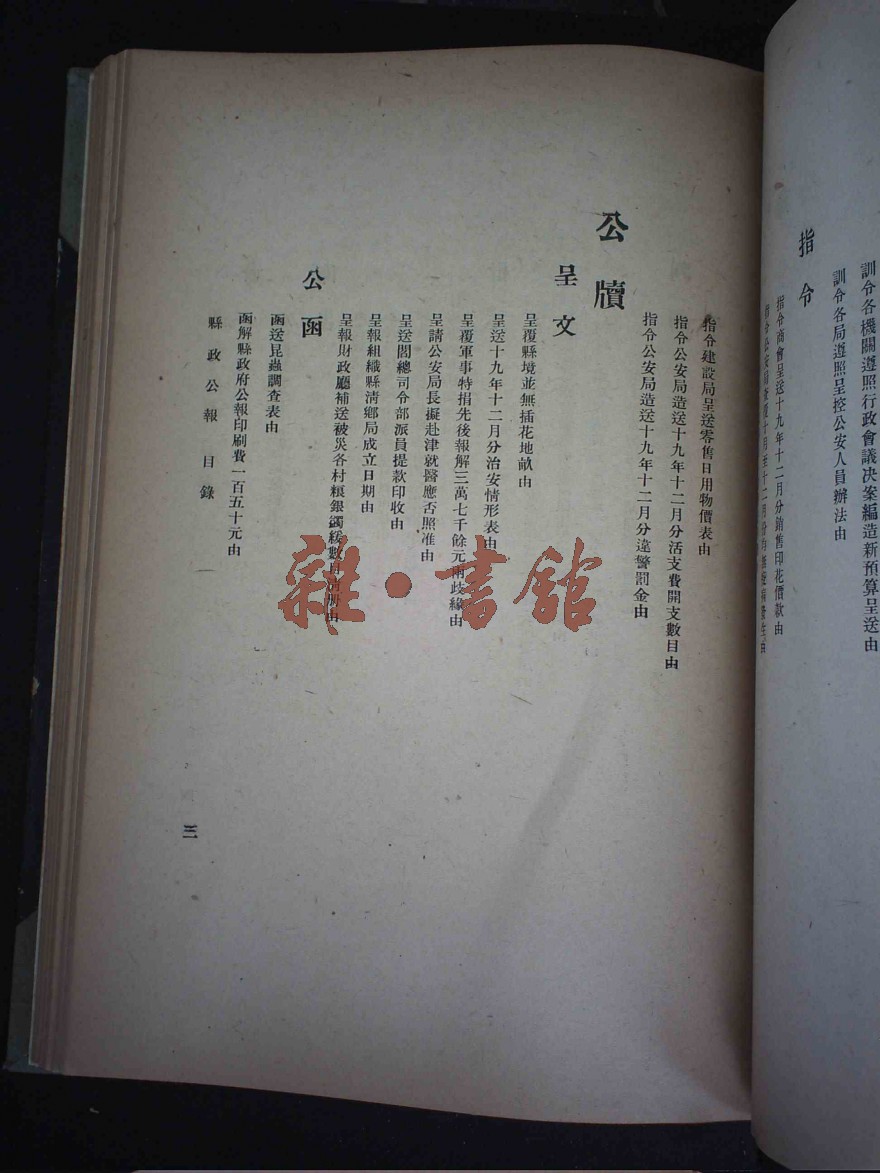 訓令各機關遵照行政會議决案編造新預算呈送由
訓令各局遵照呈控公安人員辦法由
指令
指令商會呈送十九年十二月分銷售印花價款由
指令公安局查復十月至十二月份均無疫病發生由
指令建設局呈送零售日用物價表由
指令公安局造送十九年十二月分活支費開支數目由
指令公安局造送十九年十二月分違警罰金由
公牘
呈文
呈覆縣境並無插花地畝由
呈送十九年十二月分治安情形表由
呈覆軍事特捐先後報解三萬七千餘元兩歧緣由
呈請公安局長擬赴津就醫應否照准由
呈送閻總司令部派員提款印收由
呈報組織縣清鄉局成立日期由
呈報財政廳補送被災各村糧銀蠲緩數目由
公函
函送昆蟲調查表由
函解縣政府公報印刷費一百五十元由
縣政公報 目錄
三
雜·書館